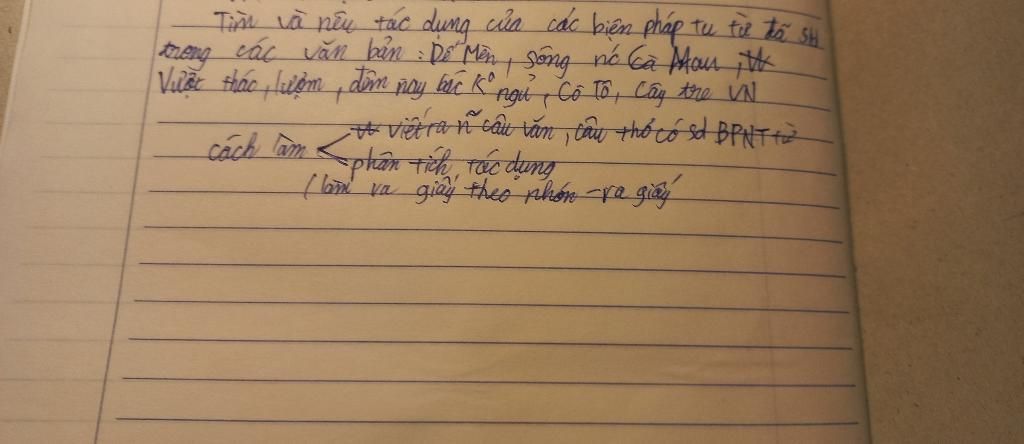 Tìm và nêu tác dụng của các biện pháp tu từ đã SH
trong các văn bản : Dế Mèn, sông nc Cà Mau,
Vượt thác, lượm, đêm nay bác K° ngủ, Cô Tô, Cây tre VN
viết ra n~ câu văn, câu thơ có sd BPNT từ
cách làm
phân tích, tác dụng
(làm ra giấy theo nhóm - ra giấy